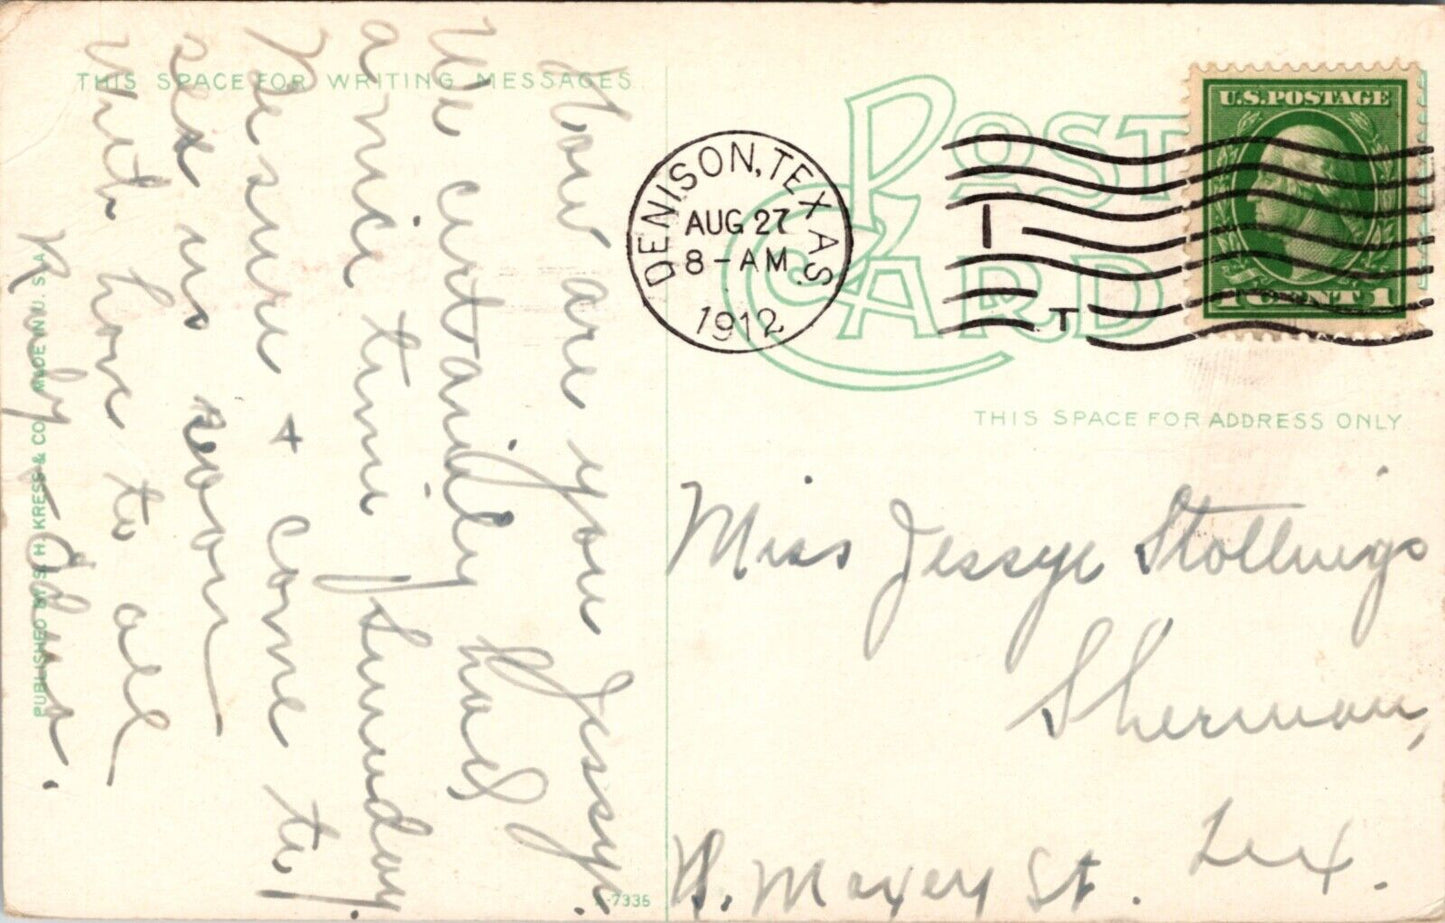 THIS SPACE FOR WRITING MESSAGES.
How are you Jessye.
We certainly had
a nice time Sunday.
Be sure + come to
see us soon
with love to all
PUBLISHED BY S. H. KRESS & CO. MADE IN U. S. A.
7335
POST CARD
DENISON, TEXAS.
AUG 27
8-AM
1912
1
T
U.S.POSTAGE
1 CENT 1
THIS SPACE FOR ADDRESS ONLY
Miss Jessye Stollings
Sherman,
Tex.
N. Maxey St.